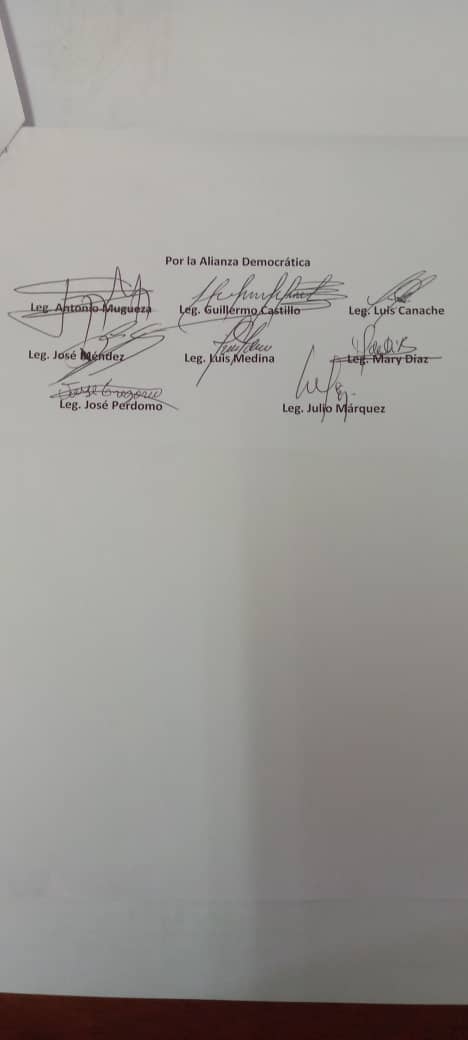 Por la Alianza Democrática
Leg. Antonio Mugueza Leg. Guillermo Castillo Leg. Luis Canache
Leg. José Méndez Leg. Luis Medina Leg. Mary Díaz
Jose Gregorio
Leg. José Perdomo Leg. Julio Márquez